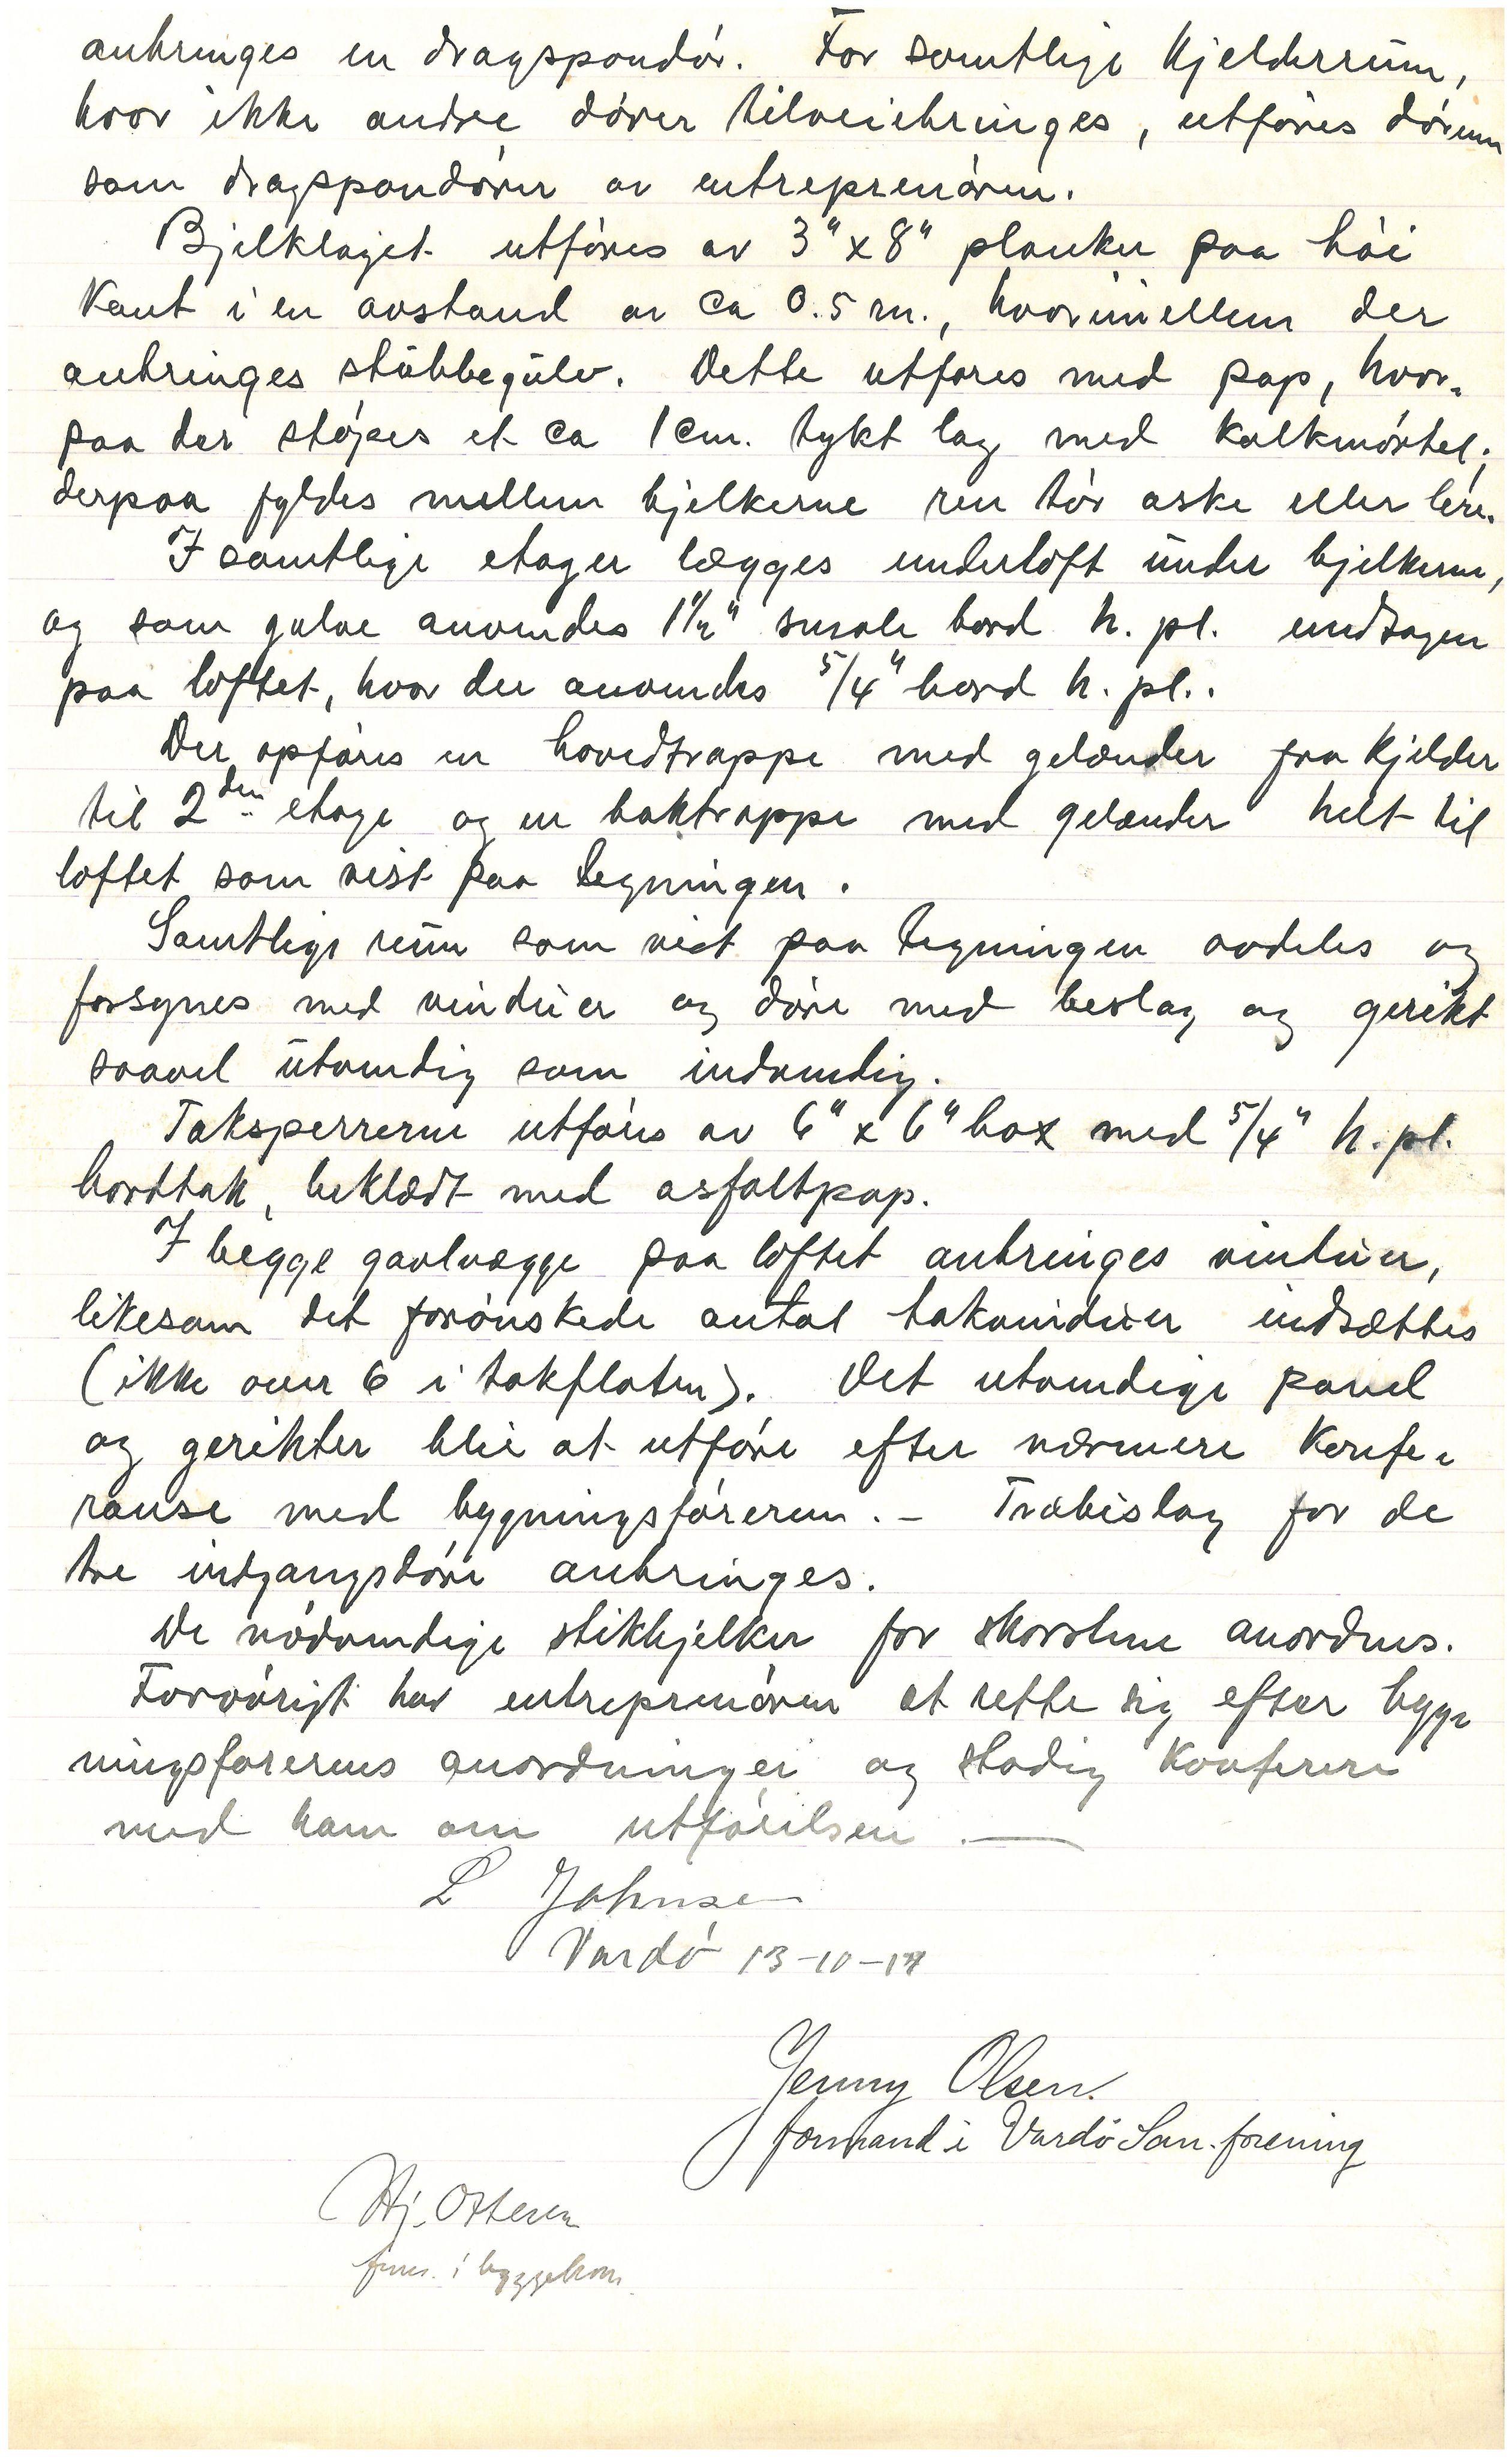 anbringes en dragspondör. For samtlige kjelderrum,
hvor ikke andre dörer tilveiebringes, utföres dörenn
som dragspondörer av entreprenören.
Bjelklaget utföres av 3" x 8" planker paa höi
kant i en avstand av ca 0.5 m., hvorimellem der
anbringes stubbegulv. Dette utföres med pap, hvor-
paa der stöpes et ca 1 cm. tykt lag med kalkmörtel;
derpaa fyldes mellem bjelkerne ren tör aske eller lere.
I samtlige etager lægges underloft under bjelkerne,
og som gulve anvendes 1½" smale bord h. pl. undtagen
paa loftet, hvor der anvendes 5/4" bord h. pl..
Der opföres en hovedtrappe med gelænder fra kjelder
til 2den etage og en baktrappe med gelænder helt til
loftet som vist paa tegningen.
Samtlige rum som vist paa tegningen avdeles og
forsynes med vinduer og döre med beslag og gerikt
saavel utvendig som indvendig.
Taksperrerne utföres av 6" x 6" box med 5/4" h. pl.
bordtak, beklædt med asfaltpap.
I begge gavlvægge paa loftet anbringes vinduer,
likesom det forönskede antal takvinduer indsættes
(ikke over 6 i takflaten). Det utvendige panel
og gerikter blir at utföre efter nærmere konfe-
ranse med bygningsföreren. - Træbislag for de
tre indgangsdöre anbringes.
De nödvendige stikbjelker for skorstene anordnes.
Forövrigt har entreprenören at rette sig efter byg-
ningsförerens anordninger og stadig konferere
med ham om utförelsen. —
L Johnsen
Vardö 13-10-17
Jenny Olsen.
formand i Vardö San. forening
Hj. Ottesen
form. i byggekom.